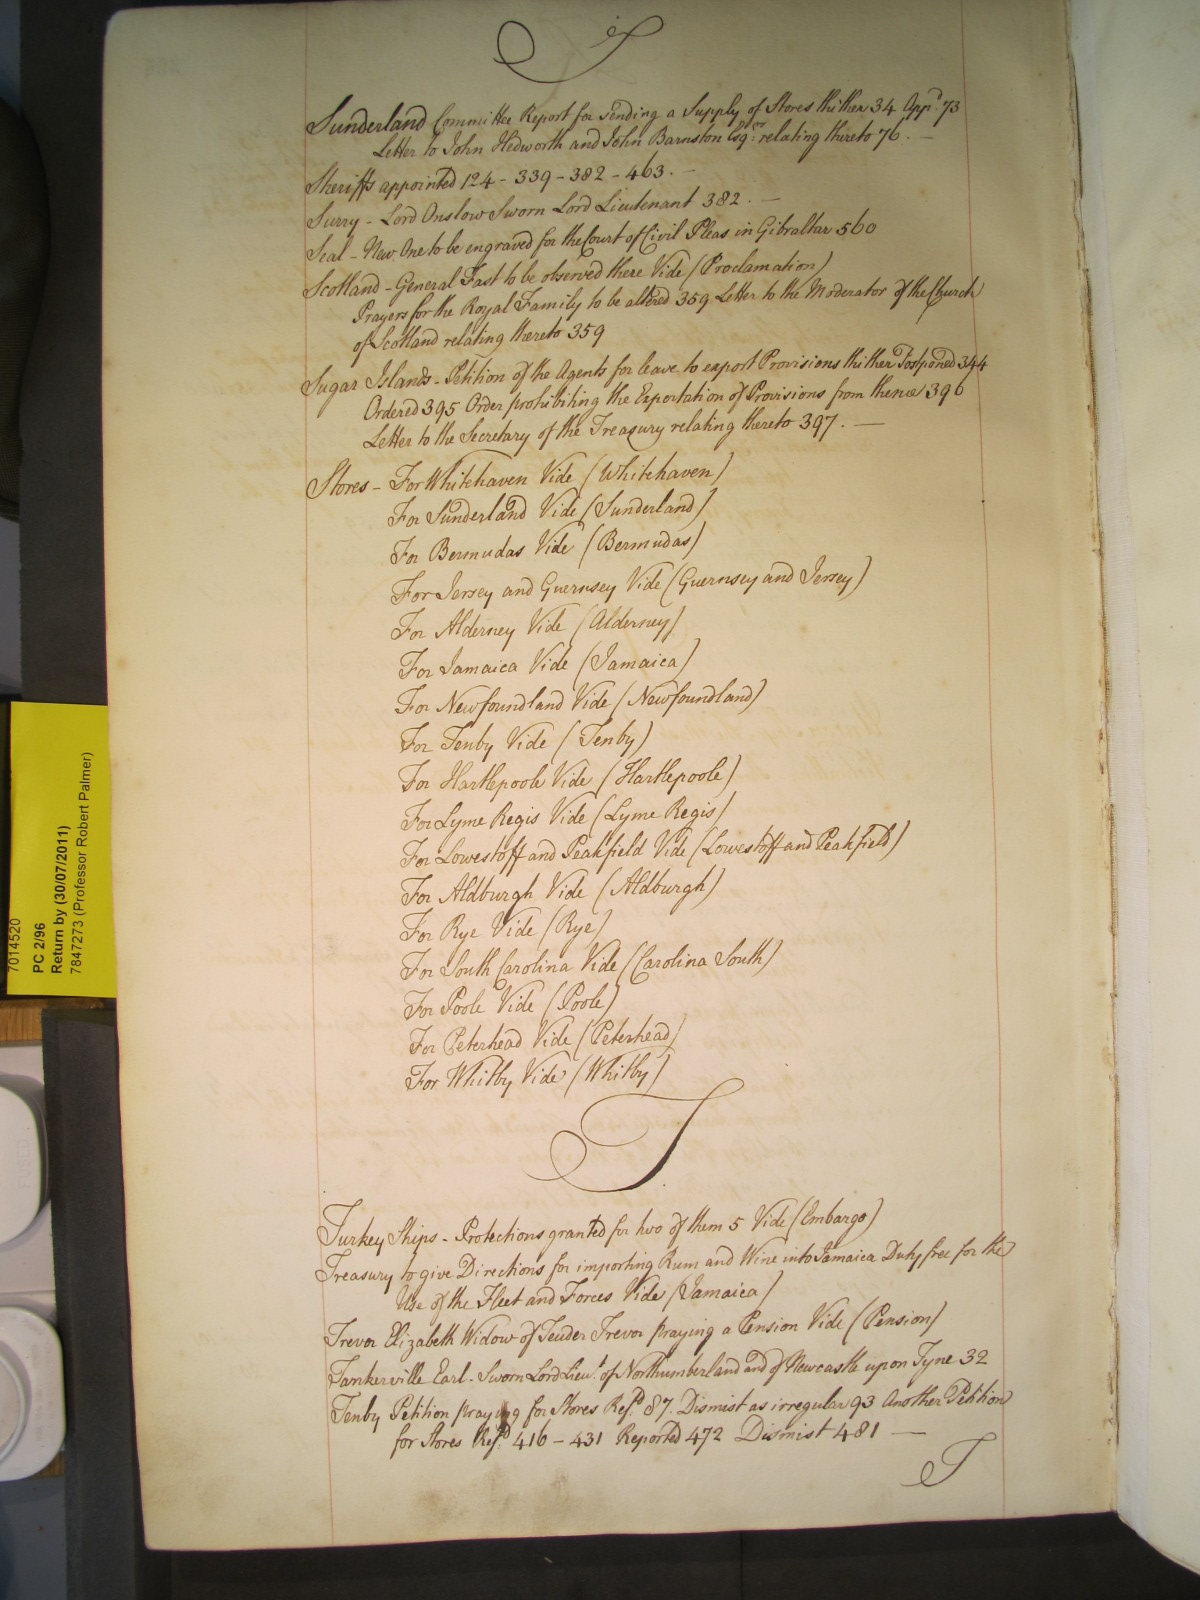 S
Sunderland Committee Report for sending a Supply of Stores thither 34 Appd. 73
Letter to John Hedworth and John Barnston Esqrs. relating thereto 76. —
Sheriffs appointed 124 - 339 - 382 - 463. —
Surry - Lord Onslow Sworn Lord Lieutenant 382. —
Seal - New One to be engraved for the Court of Civil Pleas in Gibraltar 560
Scotland - General Fast to be observed there Vide (Proclamation)
Prayers for the Royal Family to be altered 359 Letter to the Moderator of the Church
of Scotland relating thereto 359
Sugar Islands - Petition of the Agents for leave to export Provisions thither Postponed 344
Ordered 395 Order prohibiting the Exportation of Provisions from thence 396
Letter to the Secretary of the Treasury relating thereto 397. —
Stores - For Whitehaven Vide (Whitehaven)
For Sunderland Vide (Sunderland)
For Bermudas Vide (Bermudas)
For Jersey and Guernsey Vide (Guernsey and Jersey)
For Alderney Vide (Alderney)
For Jamaica Vide (Jamaica)
For Newfoundland Vide (Newfoundland)
For Tenby Vide (Tenby)
For Hartlepoole Vide (Hartlepoole)
For Lyme Regis Vide (Lyme Regis)
For Lowestoff and Peakfield Vide (Lowestoff and Peakfield)
For Aldburgh Vide (Aldburgh)
For Rye Vide (Rye)
For South Carolina Vide (Carolina South)
For Poole Vide (Poole)
For Peterhead Vide (Peterhead)
For Whitby Vide (Whitby)
T
Turkey Ships - Protections granted for two of them 5 Vide (Embargo)
Treasury to give Directions for importing Rum and Wine into Jamaica Duty free for the
Use of the Fleet and Forces Vide (Jamaica)
Trevor Elizabeth Widow of Teuder Trevor praying a Pension Vide (Pension)
Tankerville Earl - Sworn Lord Lieut. of Northumberland and of Newcastle upon Tyne 32
Tenby Petition praying for Stores Refd. 87. Dismist as irregular 93 Another Petition
for Stores Refd. 416 - 431 Reported 472 Dismist 481 —
T
7014520
PC 2/96
Return by (30/07/2011)
7847273 (Professor Robert Palmer)